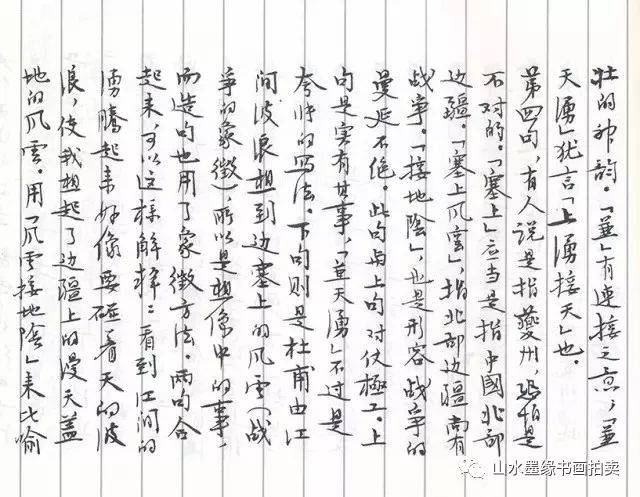 壮的神韵。「兼」有連接之意，「兼
天湧」犹言「上湧接天」也。
第四句，有人说是指夔州，恐怕是
不对的。「塞上」应当是指中國北部
边疆。「塞上风雲」，指北部边疆尚有
战事。「接地陰」，也是形容战争的
曼延不绝。此句与上句对仗極工。上
句是实有其事，「兼天湧」不过是
夸张的写法。下句则是杜甫由江
间波浪想到边塞上的风雲（战
争的象徵），所以是想像中的事，
而造句也用了象徵方法。两句合
起来，可以这样解释：看到江间的
湧騰起来好像要碰着天的波
浪，使我想起了边疆上的漫天盖
地的风雲。用「风雲接地陰」来比喻
山水墨缘书画拍卖